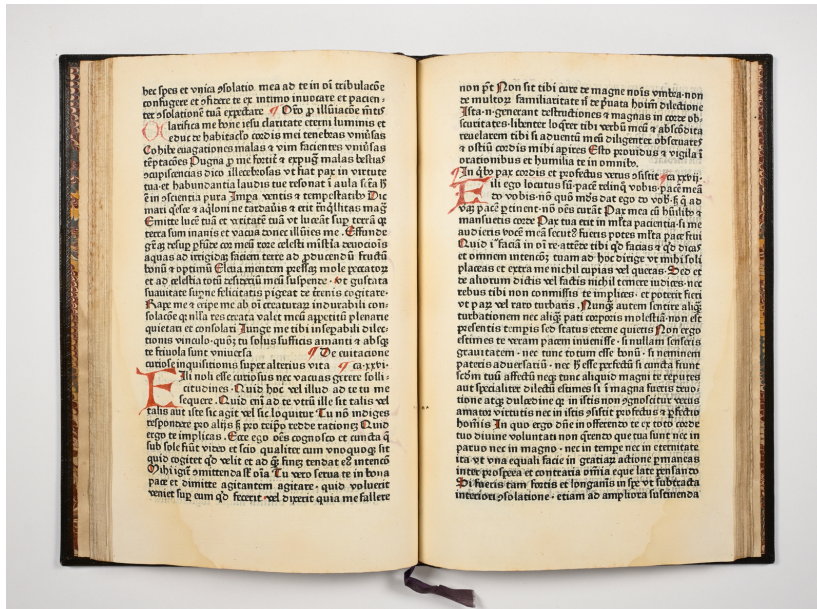 hec spes et vnica ꝯsolatio mea ad te in oĩ tribulacõe
confugere et ꝯfidere te ex intimo inuocare et pacien-
ter ꝯsolationẽ tuã expectare ¶ Oro ꝓ illuĩacõe mẽtis
Clarifica me bone iesu claritate eterni luminis et
educ de habitacl̃o cordis mei tenebras vniũsas
Cohibe euagationes malas ⁊ vim facientes vniũsas
tẽptacões Pugna ꝓ me fortit̃ ⁊ expug̃ malas bestias
ꝯcupiscencias dico illecebrosas vt fiat pax in virtute
tua et habundantia laudis tue resonat ĩ aula sc̃a hͦ
ẽ in ꝯscientia pura Impa ventis ⁊ tempestatibꝰ Dic
mari q̃esce ⁊ aq̃loni ne
Emitte lucẽ tuã et veritatẽ tuã vt luceãt suꝑ terrã qꝛ
terra sum inanis et vacua donec illũies me Effunde
grãꝫ
aquas ad irrigãdã faciem terre ad ꝓducendũ fructũ
bonũ ⁊ optimũ Eleua mentem pressaꝫ mole pccatoꝝ
et ad celestia totũ desideriũ meũ suspende vt gustata
suauitate suꝑne felicitatis pigeat de terẽnis cogitare
Rape me ⁊ eripe me ab oĩ creaturaꝝ indurabili con-
solacõe qꝛ nlla res creata valet meũ appetitũ plenarie
quietari et consolari Iunge me tibi insepabili dilec-
tionis vinculo quoꝫ tu solus sufficis amanti ⁊ absqꝫ
te friuola sunt vniuersa ¶ De euitacione
curiose inquisitionis super alterius vita ¶ ca. xxvi.
Fili noli esse curiosus nec vacuas gerere solli-
citudines Quid hoc vel illud ad te tu me
sequere Quid em̃ ad te vtrũ ille sit talis vel
talis aut iste sic agit vel sic loquitur Tu nõ indiges
respondere pro alijs sʒ pro teipo redde rationeꝫ Quid
ergo te implicas Ecce ego oẽs cognosco et cuncta q̃
sub sole fiũt video et scio qualiter cum vnoquoqꝫ sit
quid cogitet qd velit et ad quẽ fineꝫ tendat eiꝰ intencõ
Mihi igit̃ omittenda sũt oĩa Tu vero serua te in bona
pace et dimitte agitantem agitare quid voluerit
veniet suꝑ eum qd fecerit vel dixerit quia me fallere
non pt̃ Non sit tibi cure de magne nois vmbra non
de multoꝝ familiaritate nec de pͥuata hoim̃ dilectione
Ista ñ generant destructiones ⁊ magnas in corde ob-
scuritates libenter loq̃rer tibi verbũ meũ ⁊ abscõdita
reuelarem tibi si aduentũ meũ diligenter obseruares
⁊ ostiũ cordis mihi apires Esto prouidus ⁊ vigila ĩ
orationibus et humilia te in omnibꝰ
¶ In qͥbꝰ pax cordis et profectus verus ꝯsistit ¶ ca xxvij.
Fili ego locutus sũ pacẽ relinq̃ vobis pacẽ meã
do vobis nõ quõ mũdꝰ dat ego do vob̃ q̃ ad
verã pacẽ ptinent nõ oẽs curãt Pax mea cũ hũilibꝰ ⁊
mansuetis corde Pax tua erit in ml̃ta pacientia si me
audieris vocẽ meã secutꝰ fueris potes ml̃ta pace frui
Quid iᵍ faciã in oĩ re attẽde tibi qd facias ⁊ qd dicas
et omnem intencõeꝫ tuam ad hoc dirige vt mihi soli
placeas et extra me nichil cupias vel queras Sed et
de aliorum dictis vel factis nichil temere iudices nec
rebus tibi non commissis te implices et poterit fieri
vt paꝝ vel raro turbaris Nunqͣꝫ autem sentire aliqͣꝫ
turbationem nec aliqͣꝫ pati corporis molestiã non est
presentis temporis sed status eterne quietis Non ergo
estimes te veram pacem inuenisse si nullam senseris
grauitatem nec tunc totum esse bonũ si neminem
pateris aduersariũ nec hͦ esse perfectũ si cuncta fiunt
scd̃m tuũ affectũ neqꝫ tunc aliquid magni te reputes
aut specialiter dilectũ estimes si ĩ magna fueris deuo-
tione atqꝫ dulcedine qꝛ in istis non ꝯgnoscitur verus
amator virtutis nec in istis ꝯsistit profectus ⁊ ꝑfectio
homĩis In quo ergo dñe in offerendo te ex toto corde
tuo diuine voluntati non q̃rendo que tua sunt nec in
paruo nec in magno nec in tempe nec in eternitate
ita vt vna equali facie in gratiaꝝ actione ꝑmaneas
inter prospera et contraria omĩa eque lance pensando
Si fueris tam fortis et longanĩs in spe vt subtracta
interiori ꝯsolatione etiam ad ampliora sustinenda